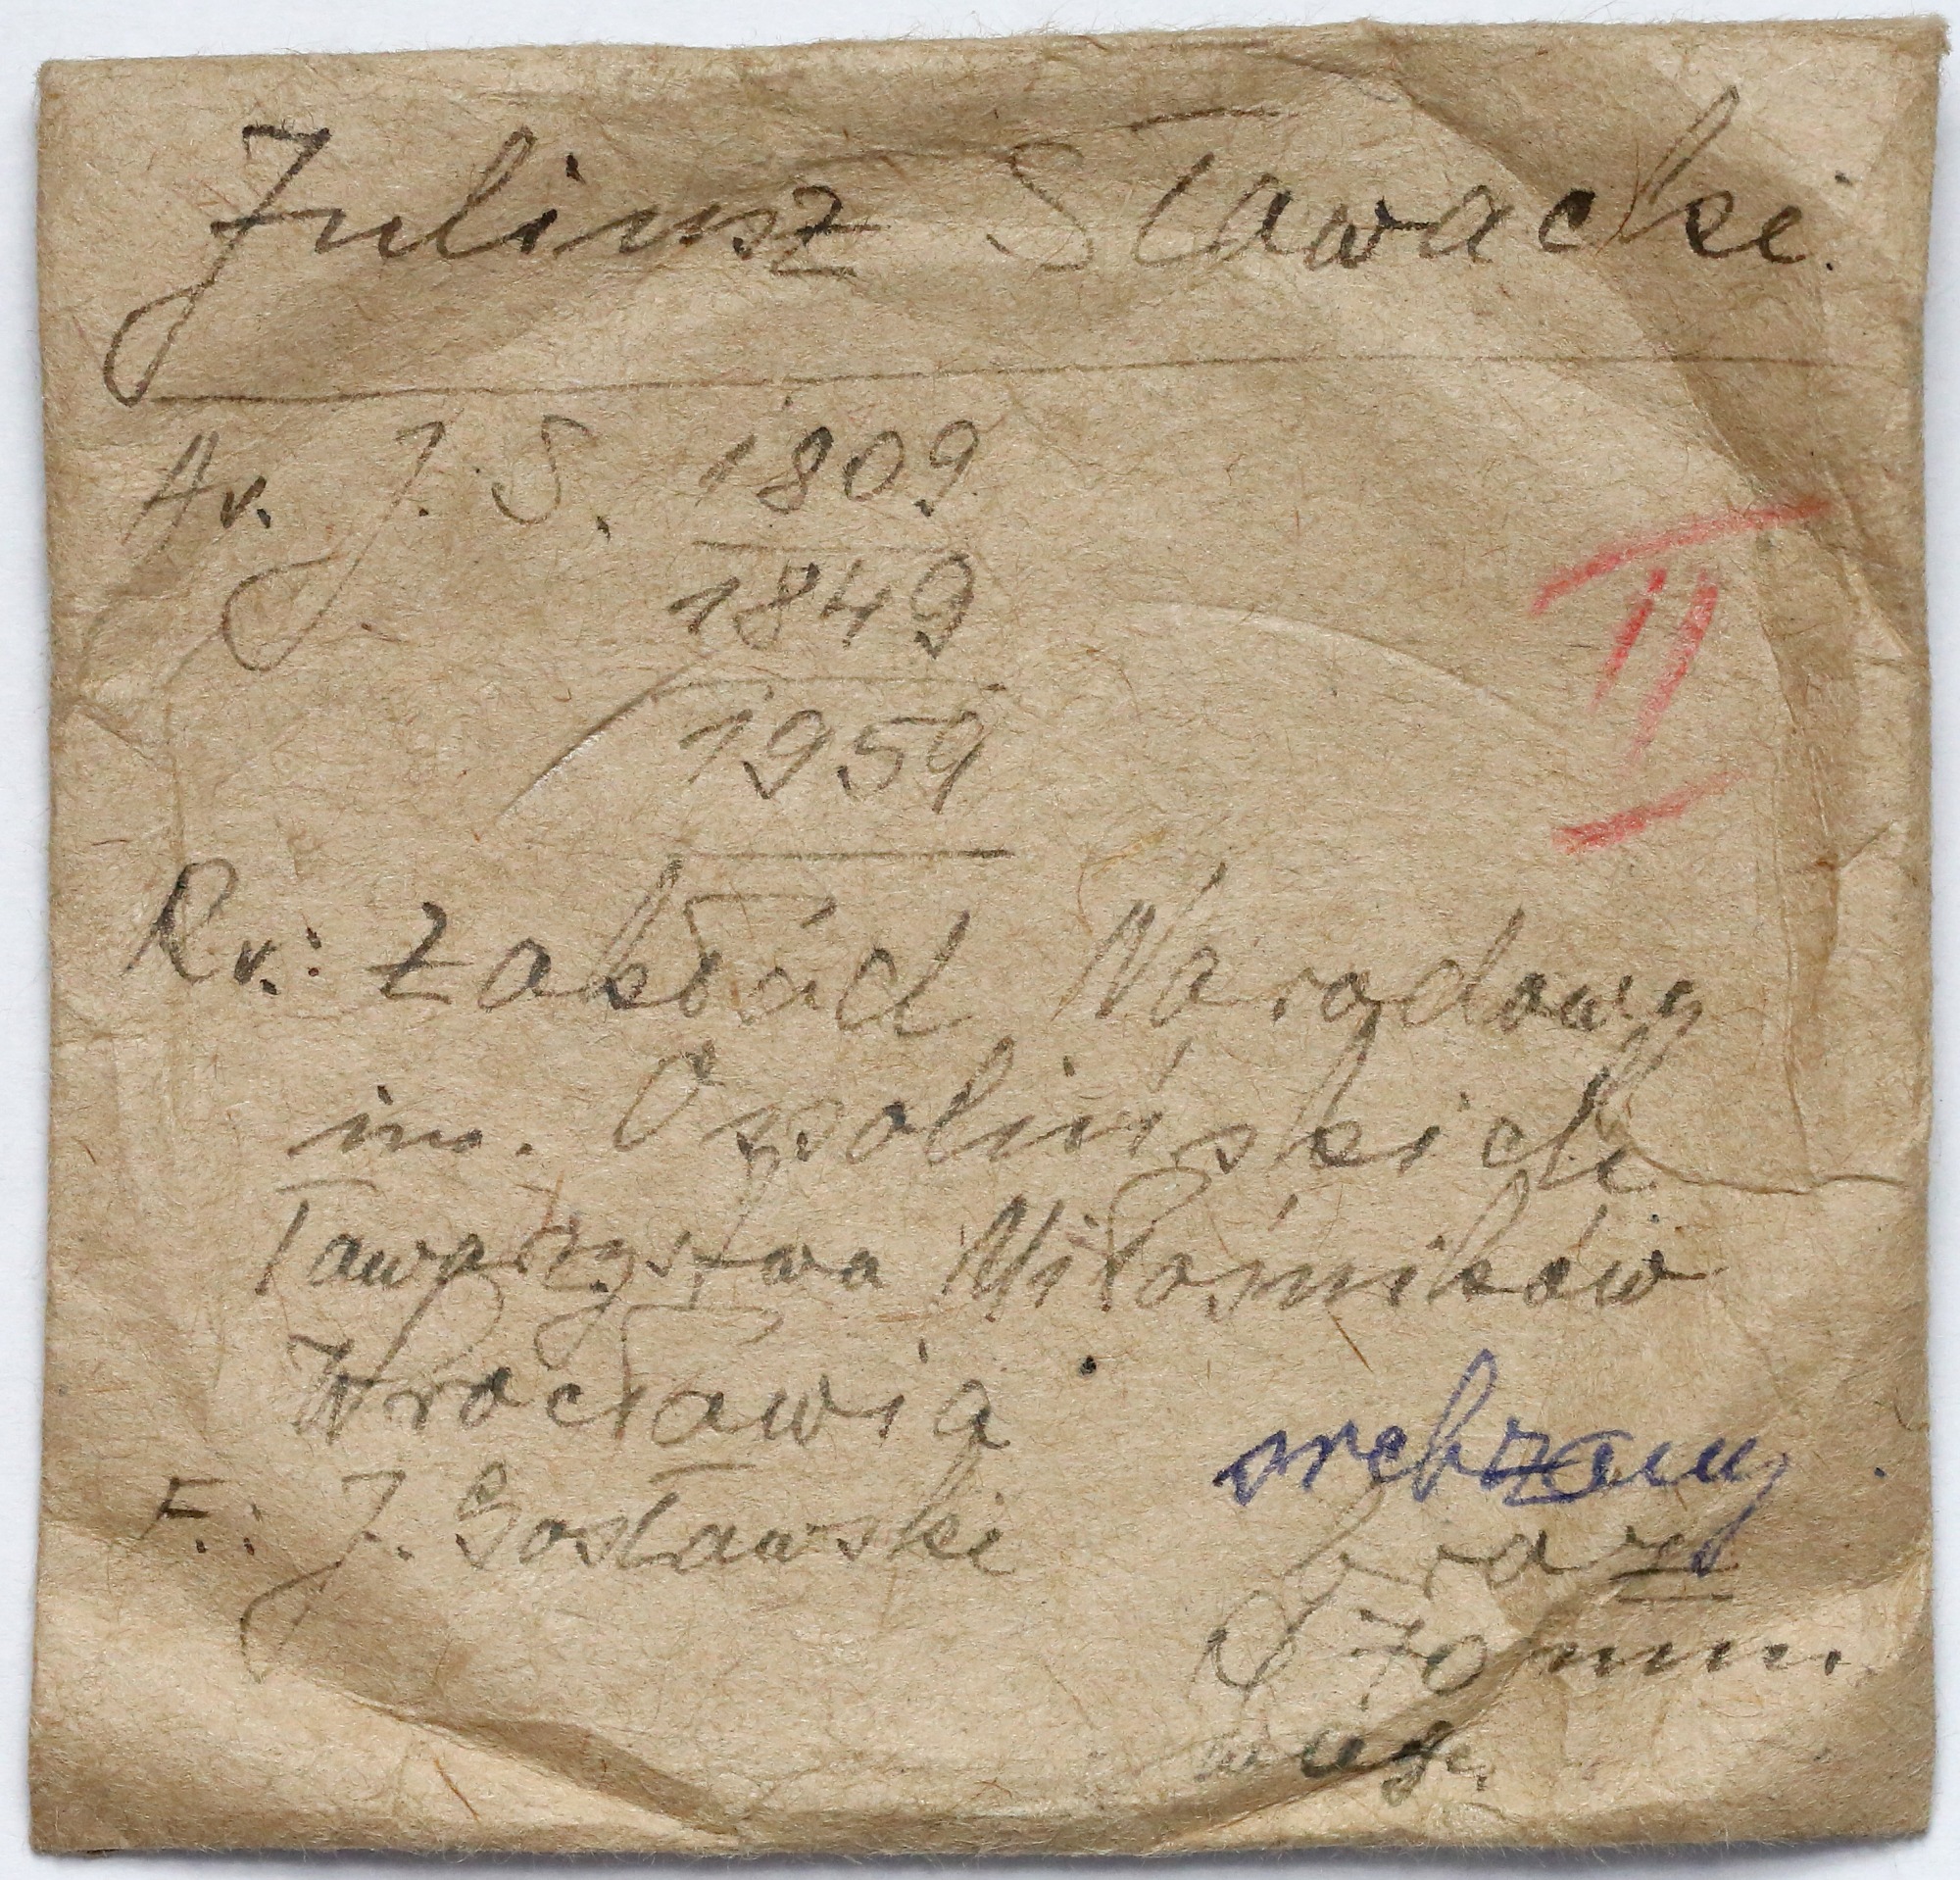 Juliusz Słowacki.
Av. J. S. 1809
1849
1959
II
Rv.: Zakład Narodowy
im. Ossolińskich
Towarzystwa Miłośników
Wrocławia.
F.: J. Gosławski
srebrzony.
brąz
70 mm.